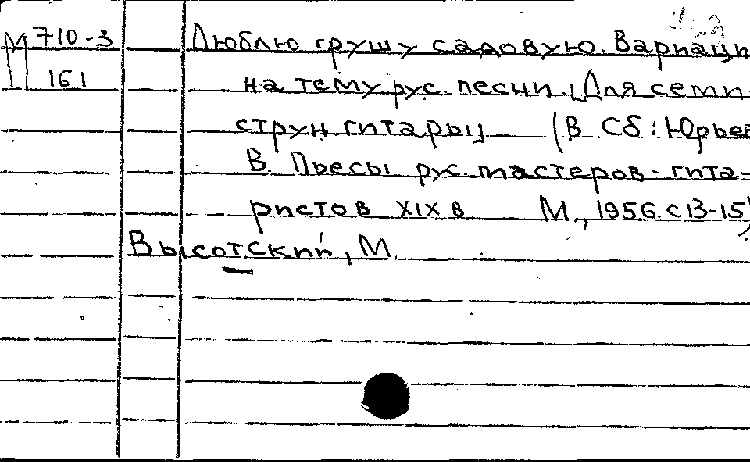 М 710-3 Люблю грушу садовую. Вариаци
161 на тему рус. песни. [Для семи
струн. гитары] (В сб: Юрьев
В. Пьесы рус. мастеров-гита-
ристов XIX в М., 1956. с 13-15)
Высотский, М.